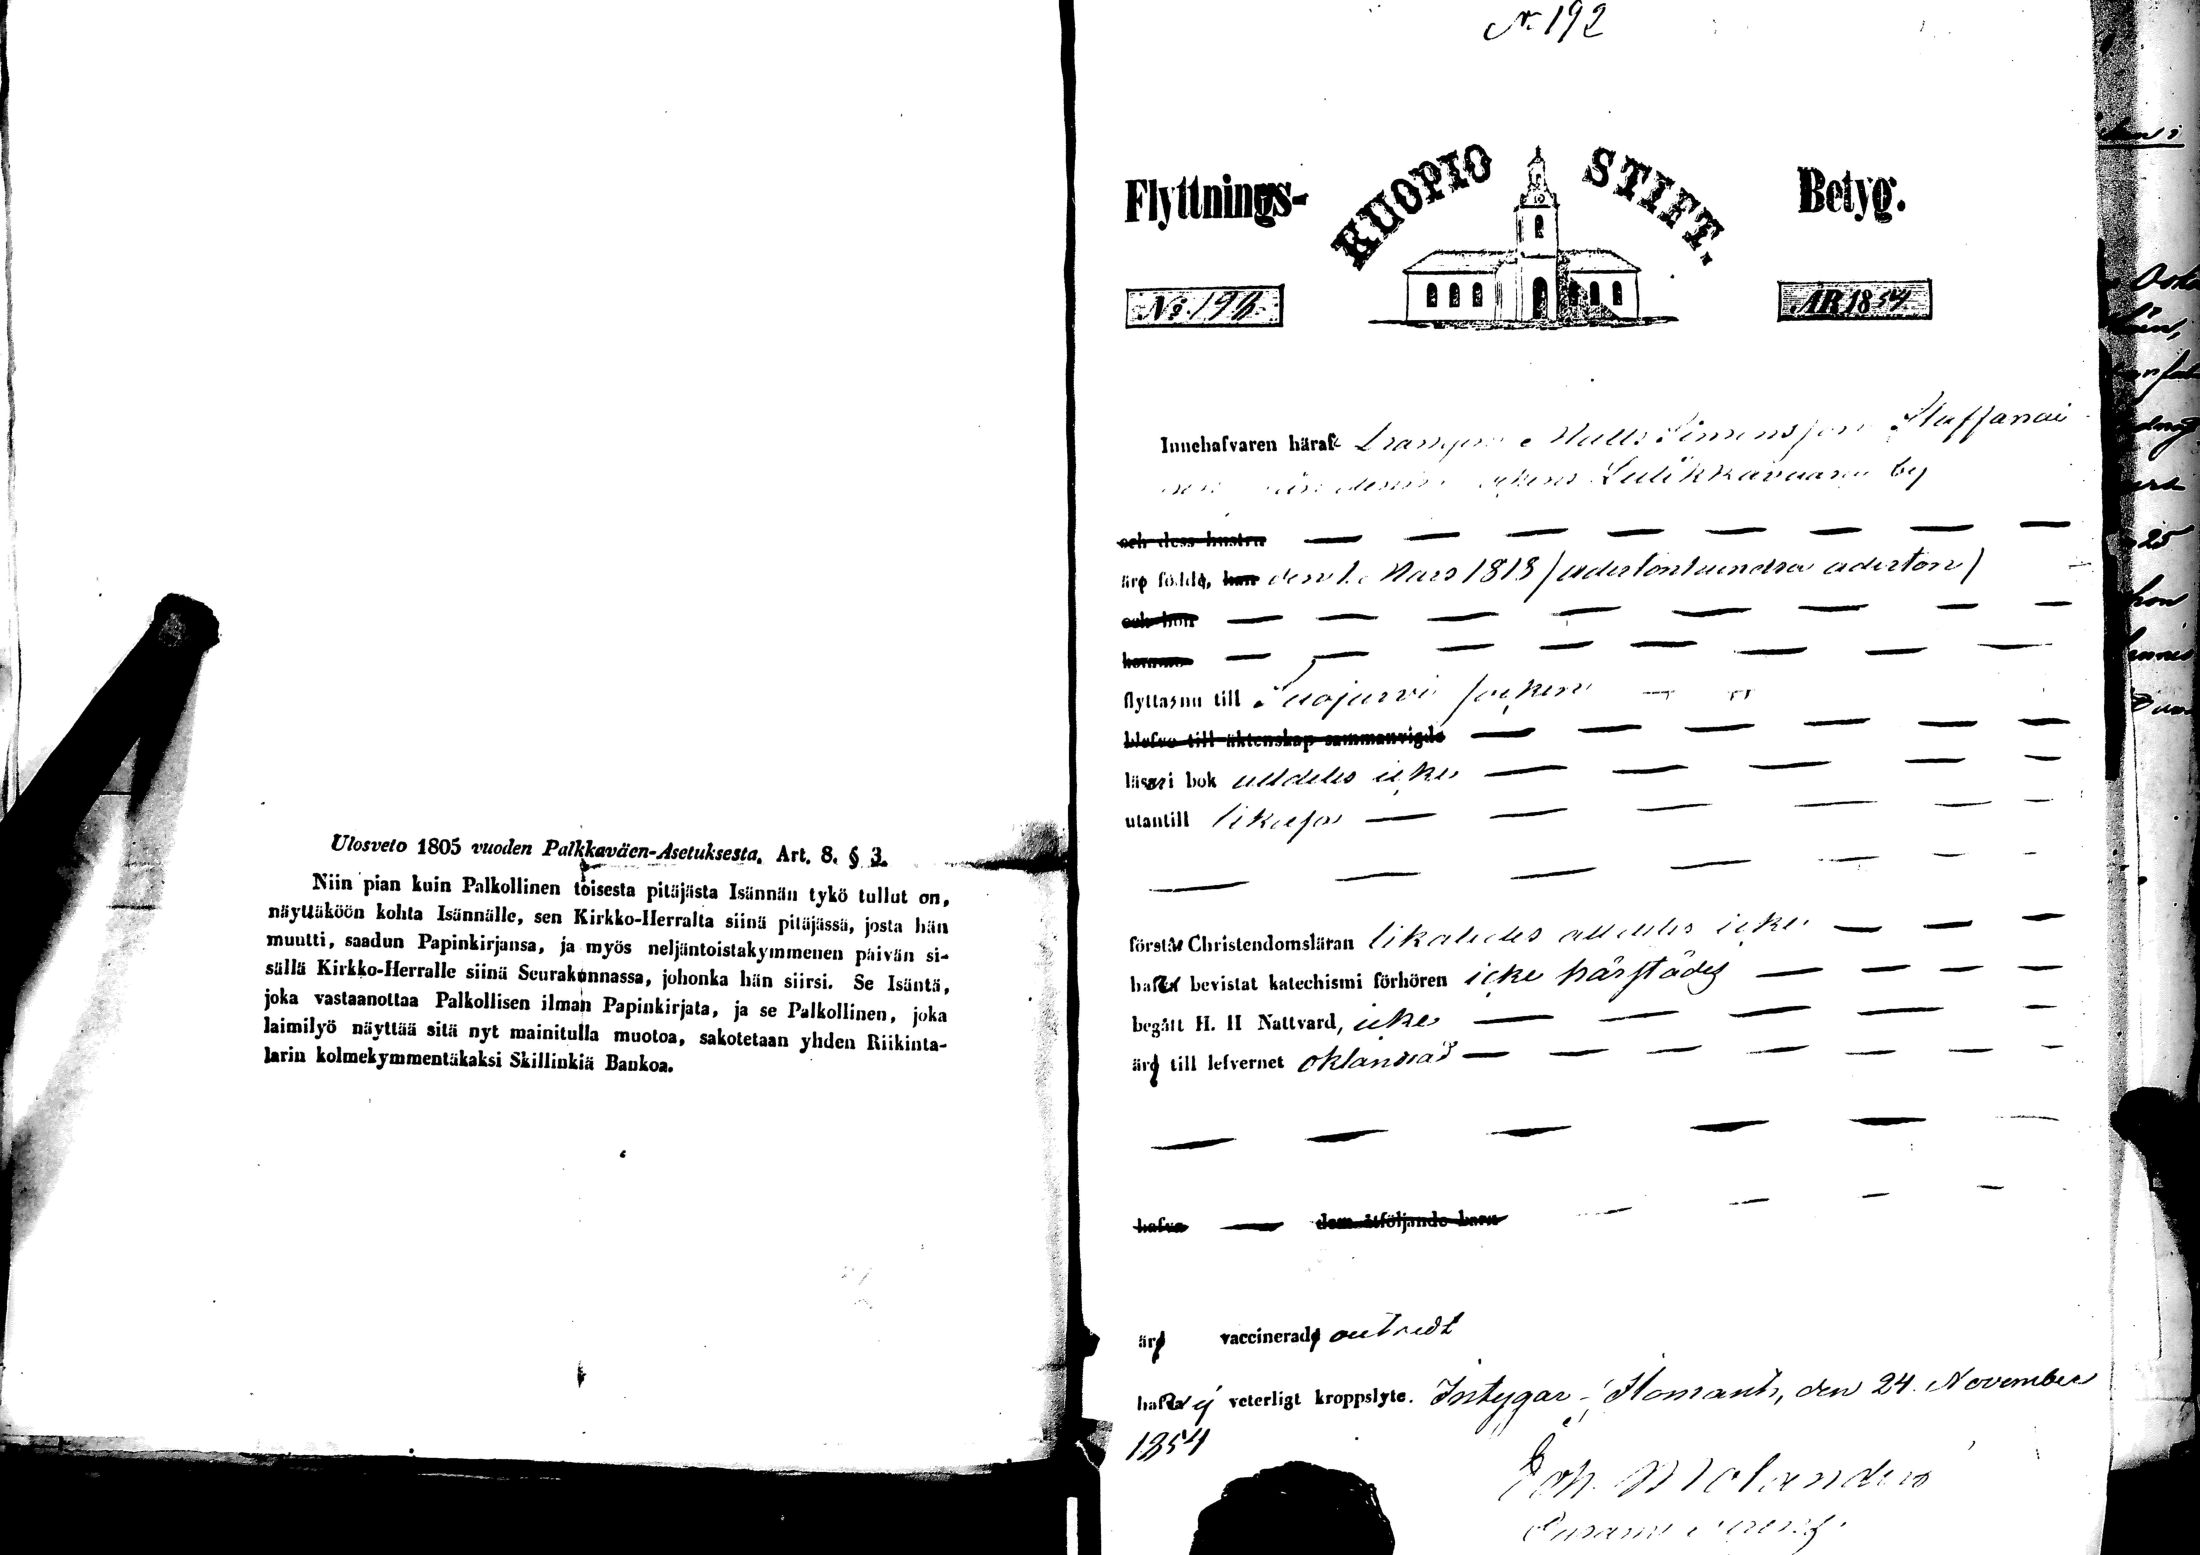 Ulosveto 1805 vuoden Palkkaväen-Asetuksesta. Art. 8. § 3.
Niin pian kuin Palkollinen toisesta pitäjästä Isännän tykö tullut on,
näyttäköön kohta Isännälle, sen Kirkko-Herralta siinä pitäjässä, josta hän
muutti, saadun Papinkirjansa, ja myös neljäntoistakymmenen päivän si-
sällä Kirkko-Herralle siinä Seurakunnassa, johonka hän siirsi. Se Isäntä,
joka vastaanottaa Palkollisen ilman Papinkirjata, ja se Palkollinen, joka
laimilyö näyttää sitä nyt mainitulla muotoa, sakotetaan yhden Riikinta-
larin kolmekymmentäkaksi Skillinkiä Bankoa.
N 192
Flyttnings- KUOPIO STIFT. Betyg.
No. 192. ÅR 1854
Innehafvaren häraf Matts Simonsson Staffanai
nen från denna sokens by
och dess hustru
äro födde, han den 1. Mars 1818 / adertonhundra aderton /
och hon
hemma
flyttasnu till Suojärvi socken
blefvo till äktenskap sammanvigde
läser i bok alldeles icke
utantill likaså
förstår Christendomsläran likaledes alldeles icke
hafva bevistat katechismi förhören icke härstädes
begått H. H Nattvard, icke
äro till lefvernet oklandrad
hafva dem åtföljande barn
äro vaccinerade
hafva ej veterligt kroppslyte. Intygar Ilomants, den 24. November
1854
Joh. Molander